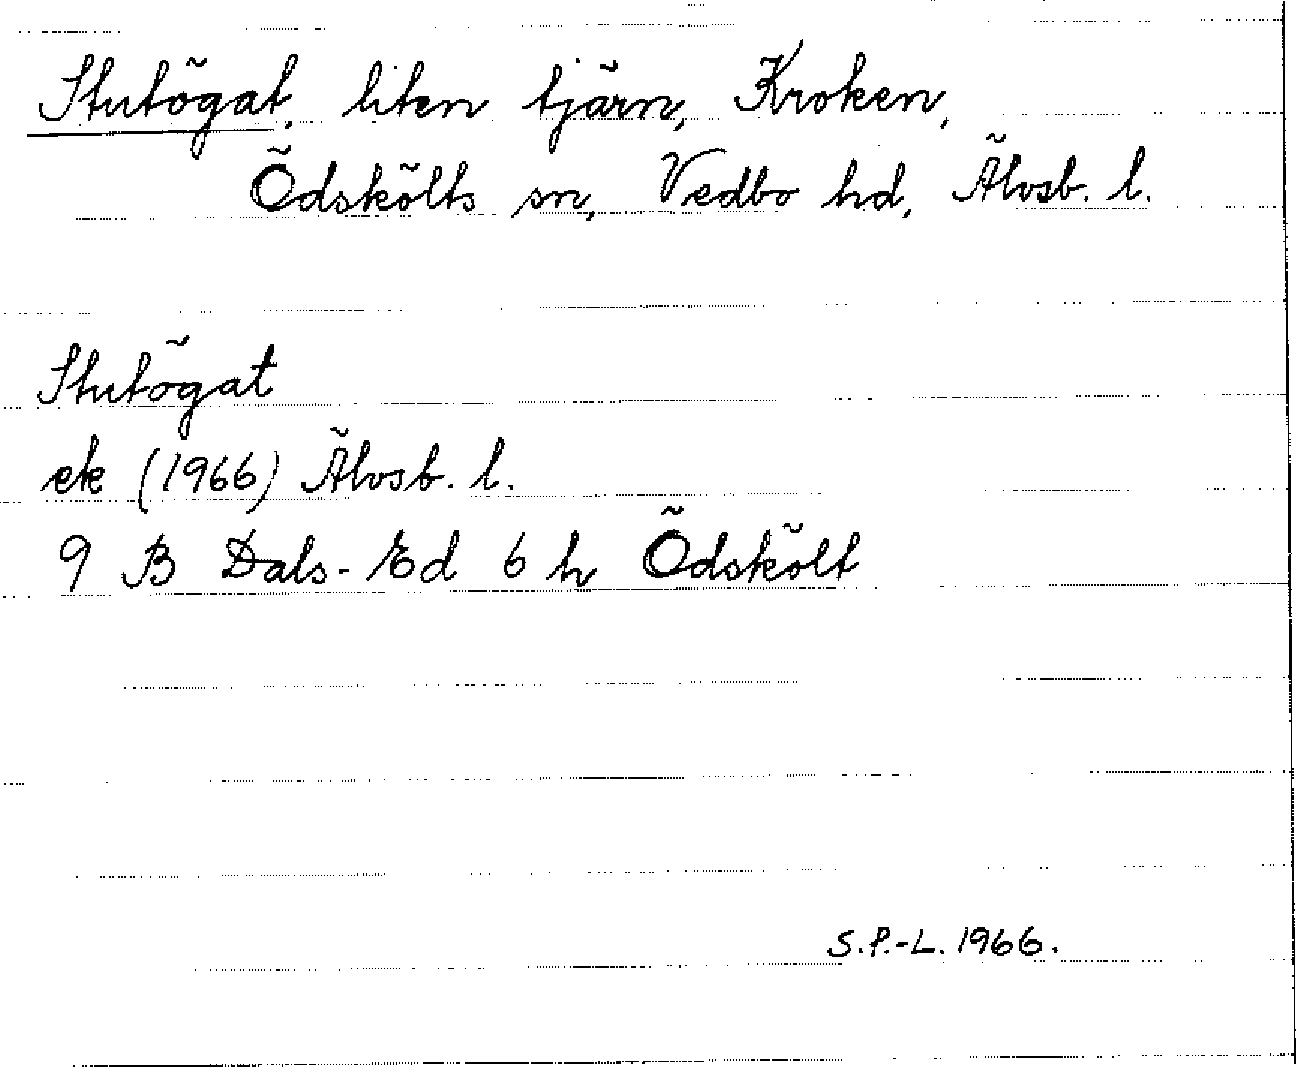 Stutögat, liten tjärn, Kroken,
Ödskölts sn, Vedbo hd, Älvsb. l.
Stutögat
ek (1966) Älvsb. l.
9 B Dals-Ed 6 h Ödskölt
S.P.-L. 1966.